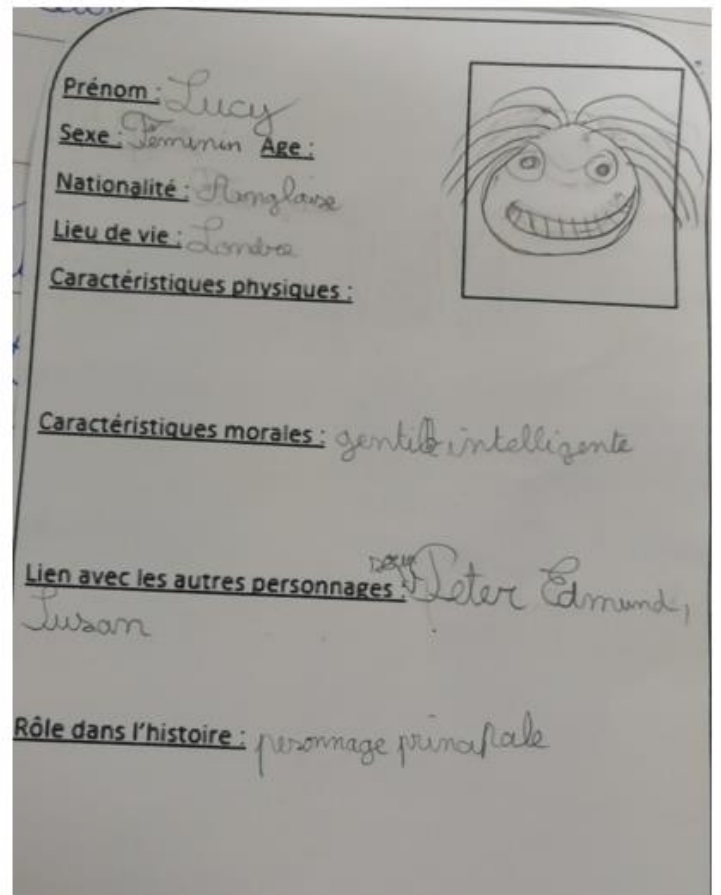 Prénom : Lucy
Sexe : Féminin Age :
Nationalité : Anglaise
Lieu de vie : Londre
Caractéristiques physiques :
Caractéristiques morales : gentille intelligente
Lien avec les autres personnages : Peter Edmund,
Susan
Rôle dans l'histoire : personnage principale